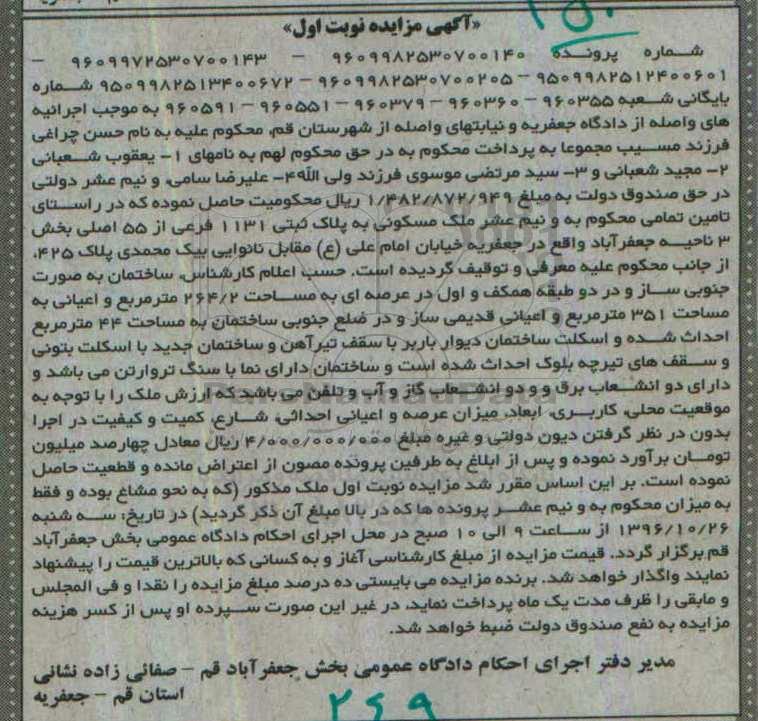 ۱۵۰
«آگهی مزایده نوبت اول»
شماره پرونده ۹۶۰۹۹۸۲۵۳۰۷۰۰۱۴۰ – ۹۶۰۹۹۷۲۵۳۰۷۰۰۱۴۳ –
۹۵۰۹۹۸۲۵۱۲۴۰۰۶۰۱ – ۹۶۰۹۹۸۲۵۳۰۷۰۰۲۰۵ – ۹۵۰۹۹۸۲۵۱۳۴۰۰۶۷۲ شماره
بایگانی شعبه ۹۶۰۳۵۵ – ۹۶۰۳۶۰ – ۹۶۰۳۷۹ – ۹۶۰۵۵۱ – ۹۶۰۵۹۱ به موجب اجرائیه
های واصله از دادگاه جعفریه و نیابتهای واصله از شهرستان قم، محکوم علیه به نام حسن چراغی
فرزند مسیب مجموعا به پرداخت محکوم به در حق محکوم لهم به نامهای ۱- یعقوب شعبانی
۲- مجید شعبانی و ۳- سید مرتضی موسوی فرزند ولی الله ۴- علیرضا سامی، و نیم عشر دولتی
در حق صندوق دولت به مبلغ ۱/۴۸۲/۸۷۲/۹۴۹ ریال محکومیت حاصل نموده که در راستای
تامین تمامی محکوم به و نیم عشر ملک مسکونی به پلاک ثبتی ۱۱۳۱ فرعی از ۵۵ اصلی بخش
۳ ناحیه جعفرآباد واقع در جعفریه خیابان امام علی (ع) مقابل نانوایی بیک محمدی پلاک ۴۲۵،
از جانب محکوم علیه معرفی و توقیف گردیده است. حسب اعلام کارشناس، ساختمان به صورت
جنوبی ساز و در دو طبقه همکف و اول در عرصه ای به مساحت ۲۶۴/۲ مترمربع و اعیانی به
مساحت ۳۵۱ مترمربع و اعیانی قدیمی ساز و در ضلع جنوبی ساختمان به مساحت ۴۴ مترمربع
احداث شده و اسکلت ساختمان دیوار باربر با سقف تیرآهن و ساختمان جدید با اسکلت بتونی
و سقف های تیرچه بلوک احداث شده است و ساختمان دارای نما با سنگ تروارتن می باشد و
دارای دو انشعاب برق و و دو انشعاب گاز و آب و تلفن می باشد که ارزش ملک را با توجه به
موقعیت محلی، کاربری، ابعاد، میزان عرصه و اعیانی احداثی، شارع، کمیت و کیفیت در اجرا
بدون در نظر گرفتن دیون دولتی و غیره مبلغ ۴/۰۰۰/۰۰۰/۰۰۰ ریال معادل چهارصد میلیون
تومان برآورد نموده و پس از ابلاغ به طرفین پرونده مصون از اعتراض مانده و قطعیت حاصل
نموده است. بر این اساس مقرر شد مزایده نوبت اول ملک مذکور (که به نحو مشاع بوده و فقط
به میزان محکوم به و نیم عشر پرونده ها که در بالا مبلغ آن ذکر گردید) در تاریخ: سه شنبه
۱۳۹۶/۱۰/۲۶ از ساعت ۹ الی ۱۰ صبح در محل اجرای احکام دادگاه عمومی بخش جعفرآباد
قم برگزار گردد. قیمت مزایده از مبلغ کارشناسی آغاز و به کسانی که بالاترین قیمت را پیشنهاد
نمایند واگذار خواهد شد. برنده مزایده می بایستی ده درصد مبلغ مزایده را نقدا و فی المجلس
و مابقی را ظرف مدت یک ماه پرداخت نماید، در غیر این صورت سپرده او پس از کسر هزینه
مزایده به نفع صندوق دولت ضبط خواهد شد.
مدیر دفتر اجرای احکام دادگاه عمومی بخش جعفرآباد قم – صفائی زاده نشانی
استان قم – جعفریه
۲۶۹